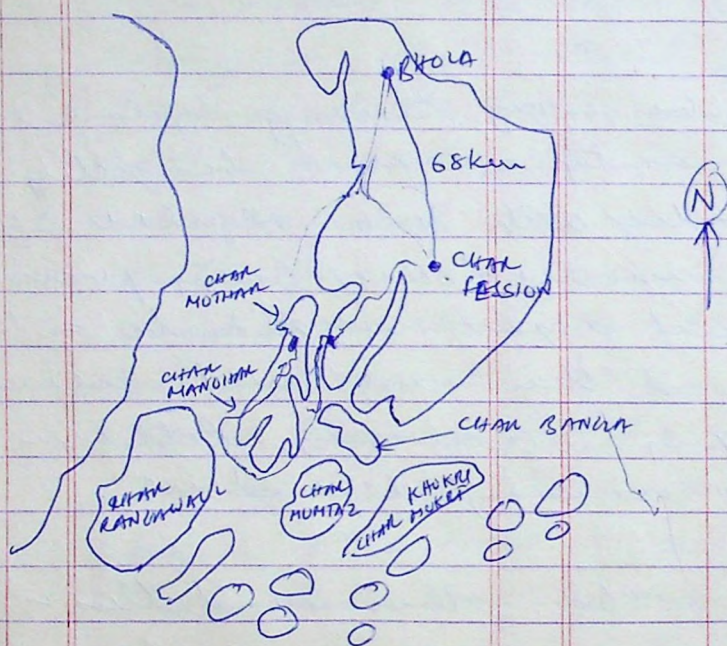 BHOLA
68km
N
CHAR
FESSION
CHAR
MOTHAR
CHAR
MANOHAR
CHAR BANGLA
CHAR
CHAR
MUMTAZ
CHAR KHUKRI
MUKRI